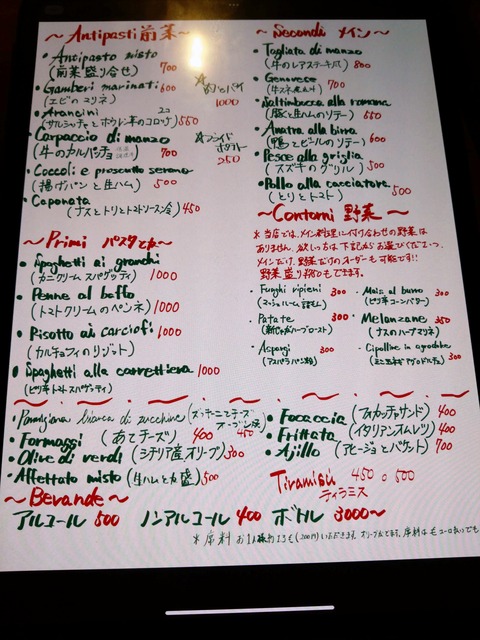 ~Antipasti 前菜~
・Antipasto misto
(前菜盛り合せ) 700
・Gamberi marinati 600
(エビのマリネ)
1000
・Arancini 2コ
(サルシッチャとホウレン草のコロッケ) 550
・Carpaccio di manzo
(牛のカルパッチョ 700
250
・Coccoli e prosciutto
(揚げパンと生ハム) 500
・Caponata
(ナスとトリとトマトソース 450
~Primi パスタ
・Spaghetti ai granchi
(カニクリームスパゲッティ) 1000
・Penne al baffo
(トマトクリームのペンネ) 1000
・Risotto ai carciofi 1000
(カルチョフィのリゾット)
・Spaghetti alla carrettiera 1000
(ピリ辛トマトスパゲッティ)
~Secondi メイン~
・Tagliata di manzo
(牛のレアステーキ 800
・Genovese
700
・Saltimbocca alla romana
(豚と生ハムのソテー) 550
・Anatra alla birra
(鴨とビールのソテー) 600
・Pesce alla griglia
(スズキのグリル) 500
・Pollo alla cacciatora
(とりとトマト) 500
~Contorni 野菜~
*当店では、メイン料理に付け合わせの野菜は
ありません。欲しい方は下記からお選びください。
メインだけ、野菜だけのオーダーも可能です!!
野菜盛り ¥950もできます。
・Funghi ripieni 300
・Mais al burro 300
(ピリ辛コーンバター)
・Patate 300
・Melanzane 350
(ナスのハーブマリネ)
・Aspargi 300
(アスパラパン粉)
・Cipolline in agrodolce
300
・Parmigiana bianca di zucchine (ズッキーニとチーズ
オーブン焼) 450
・Formaggi (あてチーズ) 400
・Olive di verdi (シチリア産オリーブ) 300
・Affettato misto (生ハム 500
・Focaccia (フォカッチャサンド) 400
・Frittata (イタリアンオムレツ) 400
・Ajillo (アヒージョとバケット) 700
Tiramisù 450 500
ティラミス
~Bevande~
アルコール 500 ノンアルコール 400 ボトル 3000~
*席料 お1人様